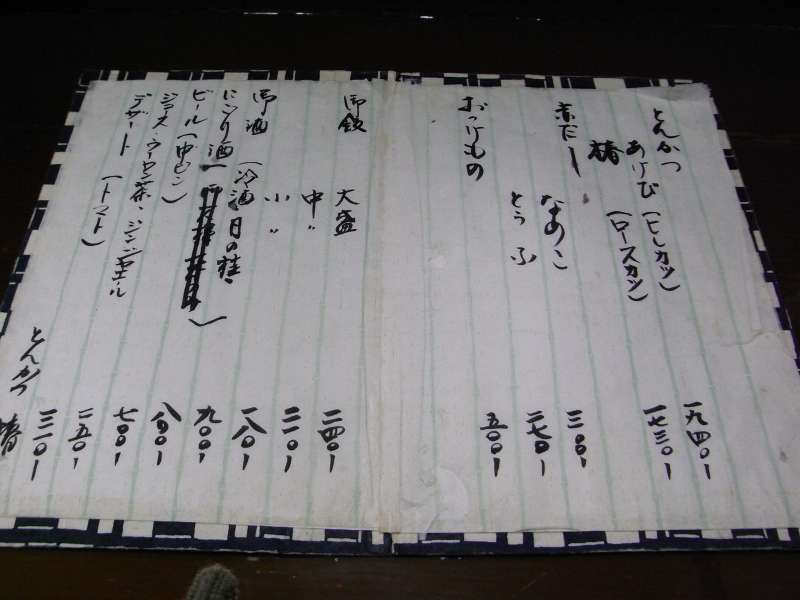 とんかつ
あけび (ヒレカツ) 一九四〇ー
椿 (ロースカツ) 一七三〇ー
赤だし なめこ 三〇〇ー
とうふ 二七〇ー
おつけもの 五〇〇ー
御飯 大盛 二四〇ー
中〃 二一〇ー
小〃 一八〇ー
御酒 (冷酒 月の桂 九〇〇ー
にごり酒 ) 八〇〇ー
ビール (中ビン) 七〇〇ー
ジュース・ウーロン茶・ジンジャエール 二五〇ー
デザート (トマト) 三一〇ー
とんかつ
椿